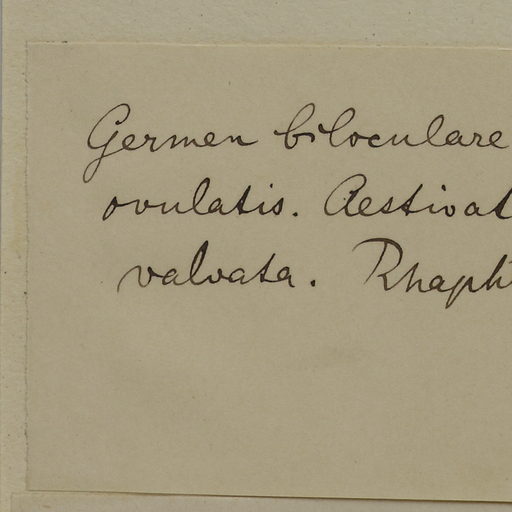 Germen biloculare
ovulatis. Aestivat
valvata. Rhaph